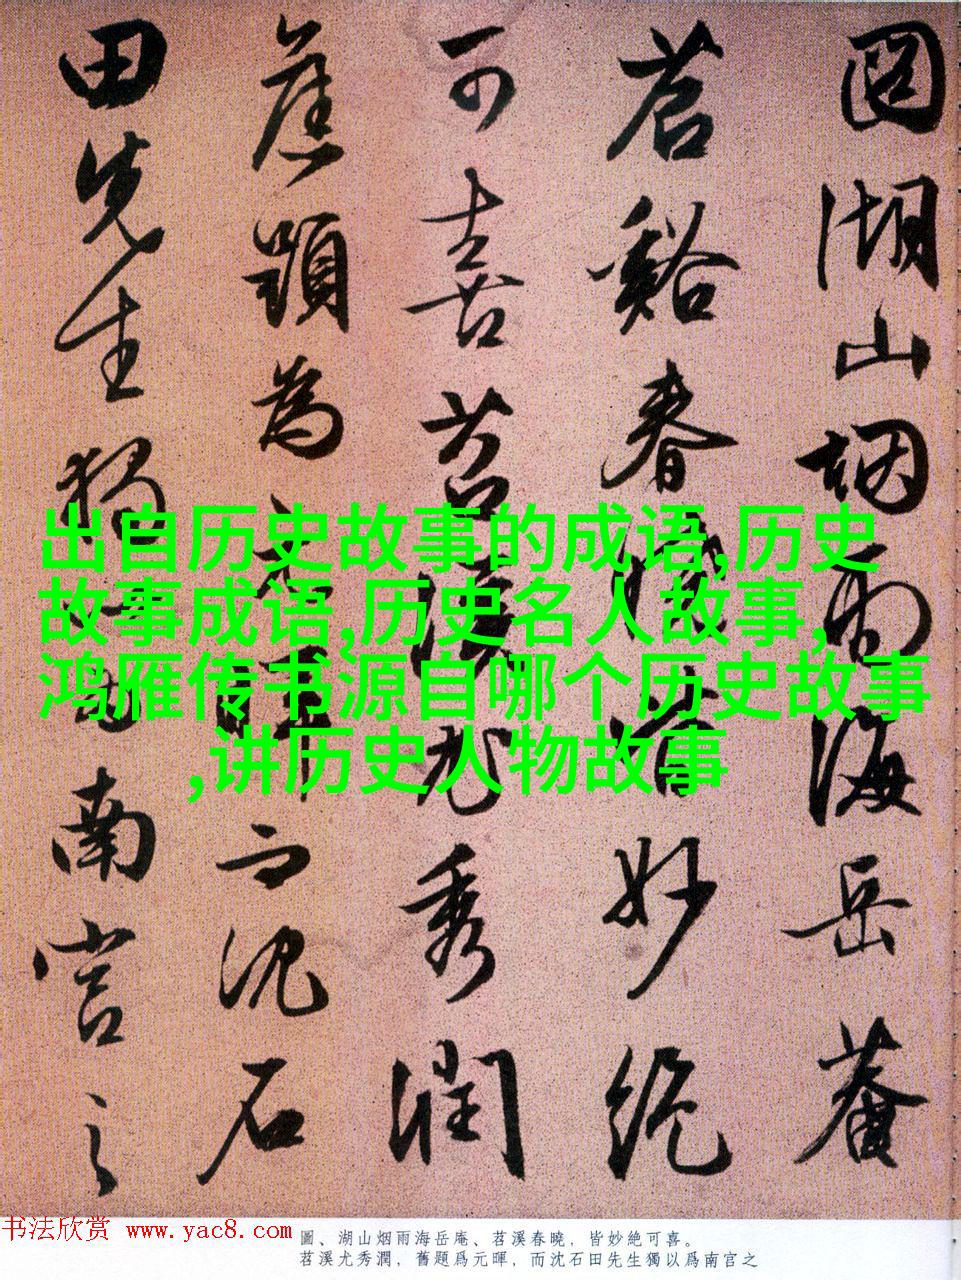 圖湖山烟雨海岳菴
苕谿春曉皆妙绝
可喜苕溪尤秀潤
舊題為元暉而沈石
田先生獨以為南宫之
出自历史故事的成语,历史
故事成语,历史名人故事,
鸿雁传书源自哪个历史故事
,讲历史人物故事
书法欣赏 www.yac8.com
圖、湖山烟雨海岳庵、苕溪春曉，皆妙絶可喜。
苕溪尤秀潤，舊題爲元暉，而沈石田先生獨以爲南宫之